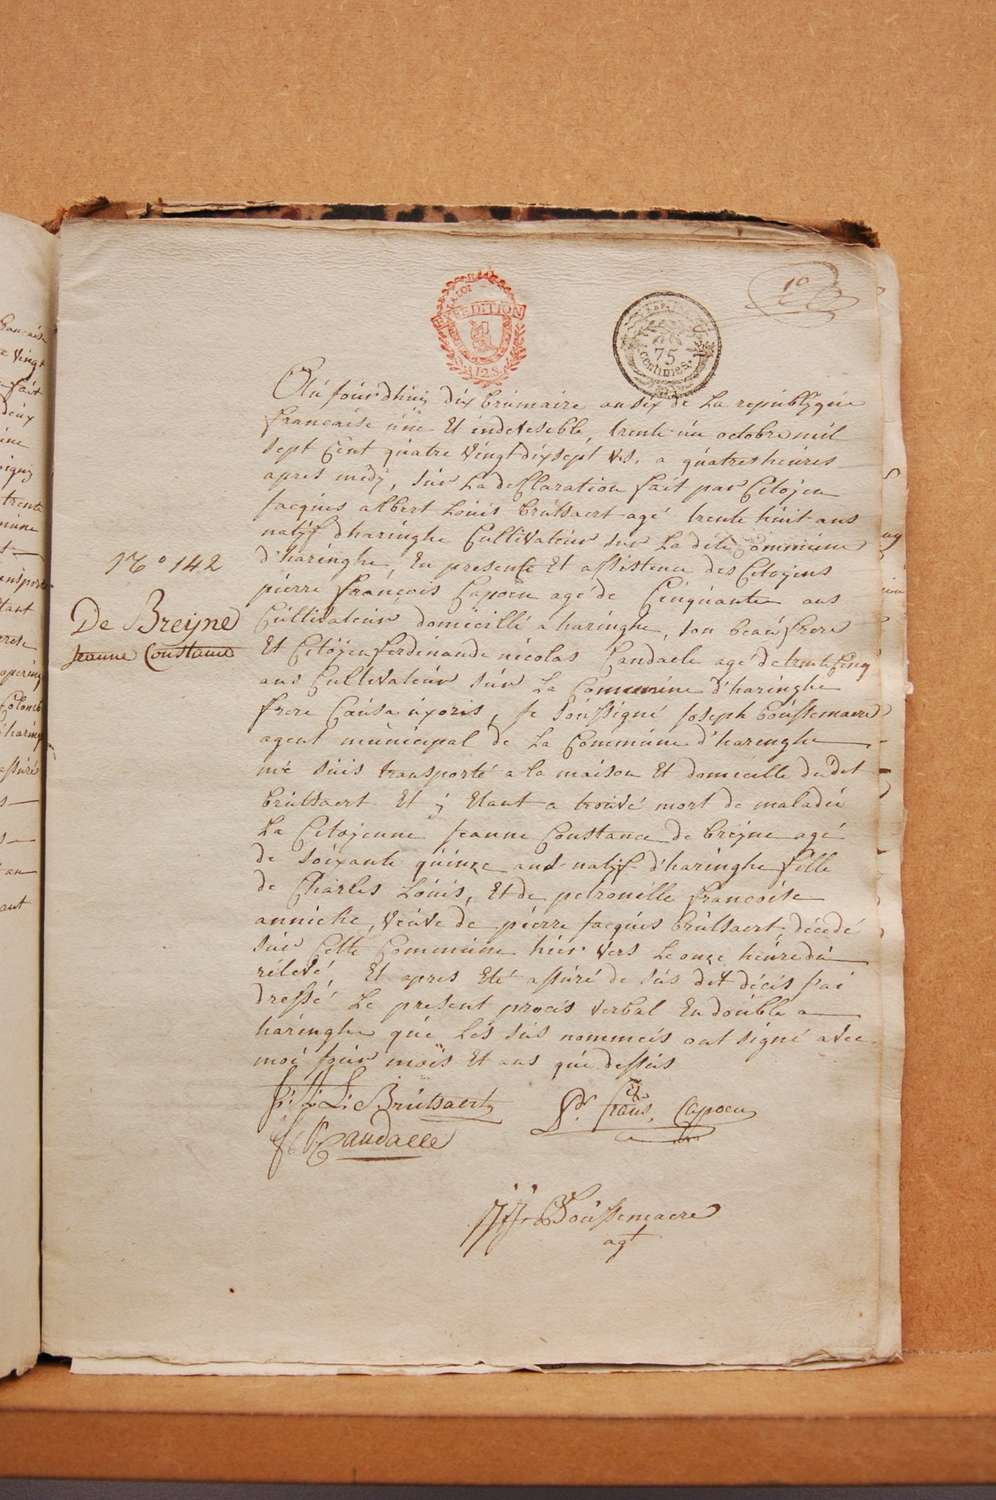 10
EXPEDITION
125
75
centimes.
Au jourdhuy dix brumaire an six de La republique
francaise une Et indevesible, trente un octobre mil
sept Cent quatre vingt dix sept v.s. a quatres heures
apres midy, sur La declaration fait par Citoyen
Jacques albert Louis brutsaert agé trente huit ans
natif d'haringhe Cultivateur sur La dite Commune
d'haringhe, En presence Et assistence des Citoyens
pierre françois Capoen age de Cinquante ans
Cultivateur domicillé a haringhe, son beaufrere
Et Citoyen ferdinande nicolas Candaele agé de trente Cinq
ans Cultivateur sur La Commune d'haringhe
frere Causa uxoris, Je soussigné Joseph boussemaere
agent municipal de La Commune d'harenghe
me suis transporté a la maison Et domicille du dt
brutsaert Et y Etant a trouvé mort de maladie
La Citoyenne Jeanne Constance de breyne agé
de soixante quinze ans natif d'haringhe fille
de Charles Louis, Et de petronille francoise
anniche, veuve de pierre Jacques brutsaert, décedé
sur Cette Commune hier vers Le onze heure du
rélevé Et apres Eté assuré de sus dit décis j'ai
dressé Le present procis verbal En double a
haringhe que Les sus nommeis ont signé avec
moi jour mois Et ans que dessus
N.o 142
De Breijne
Jeanne Constance
J: A: L: Brutsaert
Pr. frans. Capoen
f N Candaele
JJ Boussemaere
agt